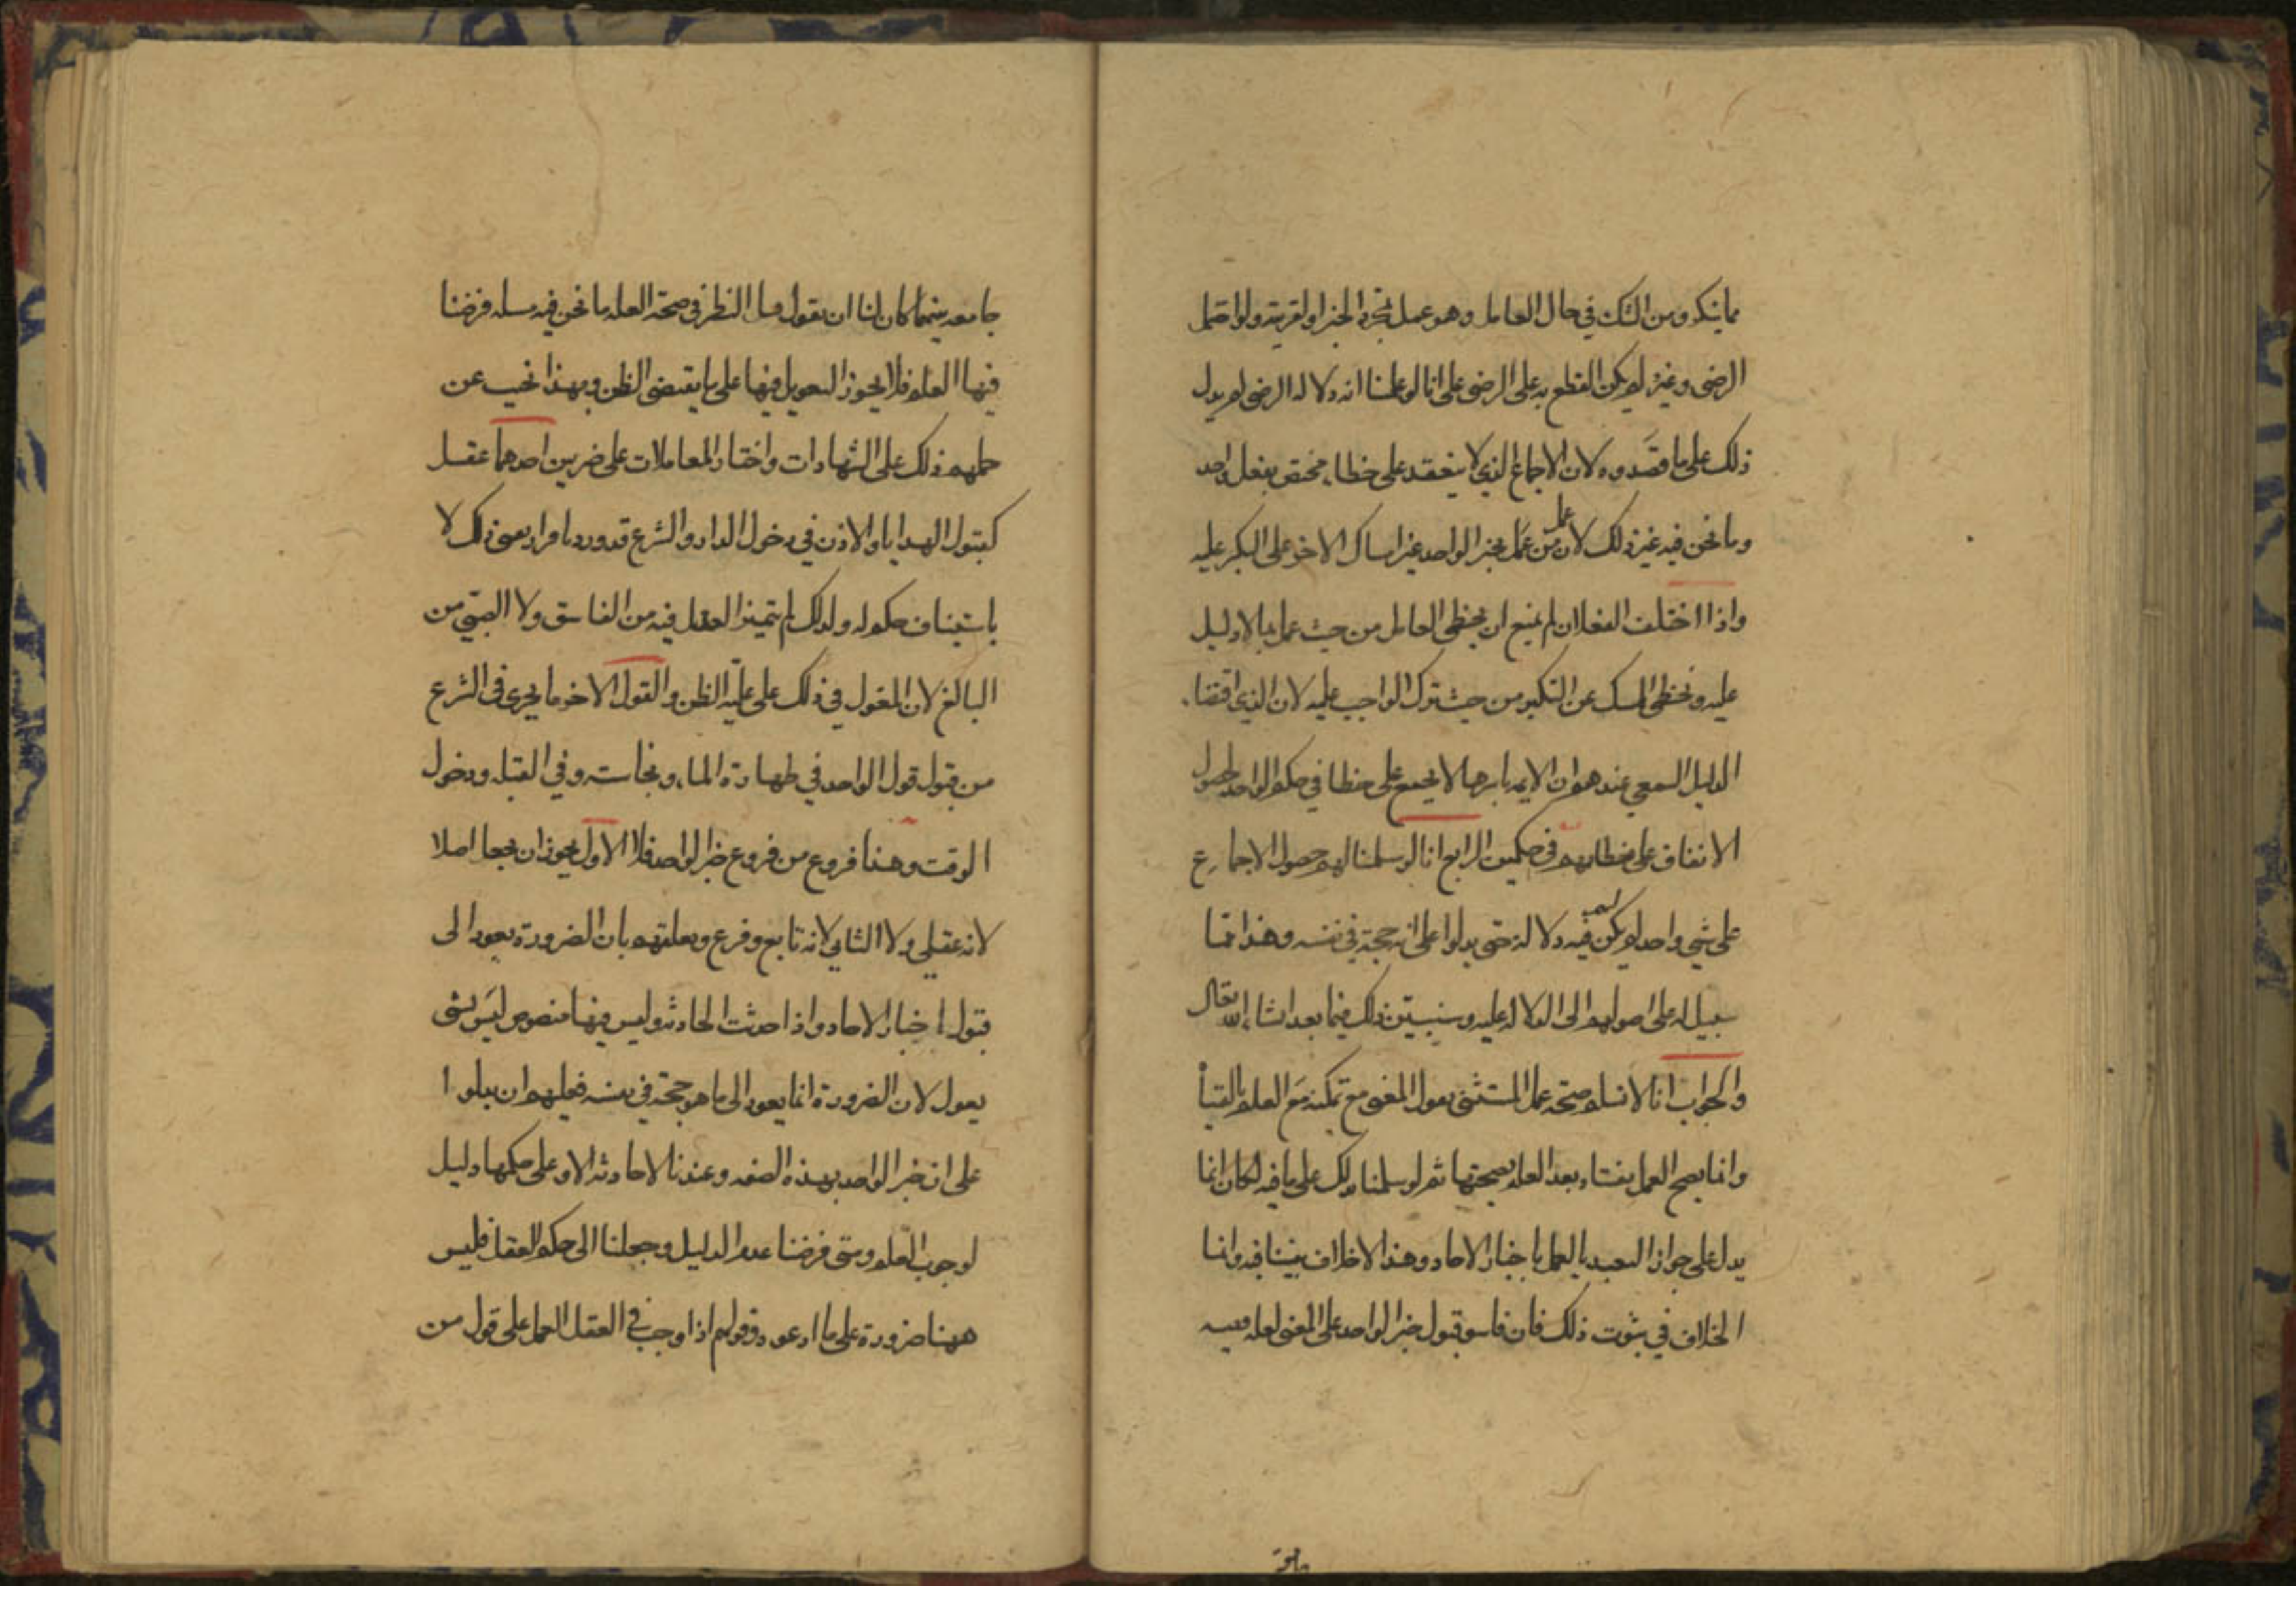 مما ينكر ومن الشك في حال العامل وهو عمل بمجرد الخبر او لقرينة ولو احتمل
الرضى وغيره لم يكن القطع به على الرضى على انا لو علمنا انه دلالة الرضى لم يدل
ذلك على ما قصدوه لان الاجماع الذي لا ينعقد على خطاء مختص بفعل واحد
وما نحن فيه غير ذلك لان عمل من عمل بخبر الواحد غير امساك الاخر على النكر عليه
واذا اختلف الفعلان لم يمنع ان يخطى العامل من حيث عمل بما لا دليل
عليه ويخطى الممسك عن النكير من حيث ترك الواجب عليه لان الذي اقتضاه
الدليل السمعي عندهم ان الامه باسرها لا يجمع على خطا في حكم الواحد لحصول
الاتفاق على خطابهم في حكمين الرابع انا لو سلمنا لهم حصول الاجماع
على شي واحد لم يكن لهم فيه دلالة حتى يدلوا على انه حجة في نفسه وهذا مما
سبيل له على اصولهم الى الدلاله عليه وسنبين ذلك فيما بعد انشا الله تعالى
والجواب انا لا نسلم صحة عمل المستفتي بقول المفتي مع تمكنه مع العلم بالفتيا
وانما يصح العمل بفتياه بعد العلم بصحتها ثم لو سلمنا ذلك على ما فيه لكان انما
يدل على جواز التعبد بالعمل باخبار الاحاد وهذا لا خلاف بيننا فيه وانما
الخلاف في ثبوت ذلك فان قاسو قبول خبر الواحد على المفتي لعله
جامعه بينهما كان لنا ان نقول قبل النظر في صحة العله ما نحن فيه مسله فرضنا
فيها العلم فلا يجوز التعويل فيها على ما يقتضى الظن وبهذا نجيب عن
حملهم ذلك على الشهادات واخبار المعاملات على ضربين احدهما عقلي
كقبول الهدايا والاذن في دخول الدار والشرع قد ورد باقرار بعض ذلك لا
باستيناف حكم له ولذلك لم يتميز العدل فيه من الفاسق ولا الصبي من
البالغ لان المعول في ذلك على غلبة الظن والقول الاخر ما يجرى فى الشرع
من قبول قول الواحد في طهارة الماء ونجاسته وفي القبله ودخول
الوقت وهنا فروع من فروع خبر الواحد فلا الاول يجوز ان يجعل اصلا
لانه عقلي ولا الثاني لانه تابع وفرع وتعلقهم بان الضرورة يعود الى
قبول اخبار الاحاد واذا حدثت الحادثه وليس فيها منصوص ليس بشى
يعول لان الضرورة انما يعود الى ما هو حجة في نفسه فعليهم ان يدلوا
على ان خبر الواحد بهذه الصفه وعندنا لا حادثة الا وعلى حكمها دليل
لوجوب العلم ومتى فرضنا عدم الدليل رجعنا الى حكم العقل فليس
ههنا ضرورة على ما ادعوه وقولهم اذا وجب في العقل العمل على قول من